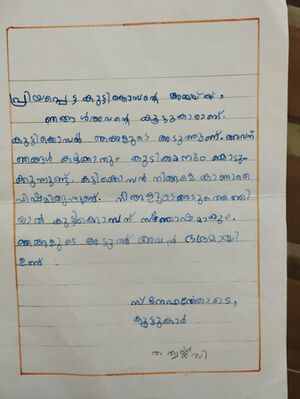 പ്രിയപ്പെട്ട കുട്ടിക്കൊമ്പന്റെ അമ്മയ്ക്ക്,
ഞങ്ങൾ അവന്റെ കൂട്ടുകാരാണ്.
കുട്ടിക്കൊമ്പൻ ഞങ്ങളുടെ അടുത്തുണ്ട്. അവന്
ഞങ്ങൾ കഴിക്കാനും കുടിക്കാനും കൊടു-
ക്കുന്നുണ്ട്. കുട്ടിക്കൊമ്പൻ നിങ്ങളെ കാണാതെ
വിഷമിക്കുന്നുണ്ട്. നിങ്ങളുടെ അടുത്തെത്തി
യാൽ കുട്ടിക്കൊമ്പന് സന്തോഷമാകും.
ഞങ്ങളുടെ അടുത്ത് അവൻ ഭദ്രമായി
ഉണ്ട്
സ്നേഹത്തോടെ,
കൂട്ടുകാർ